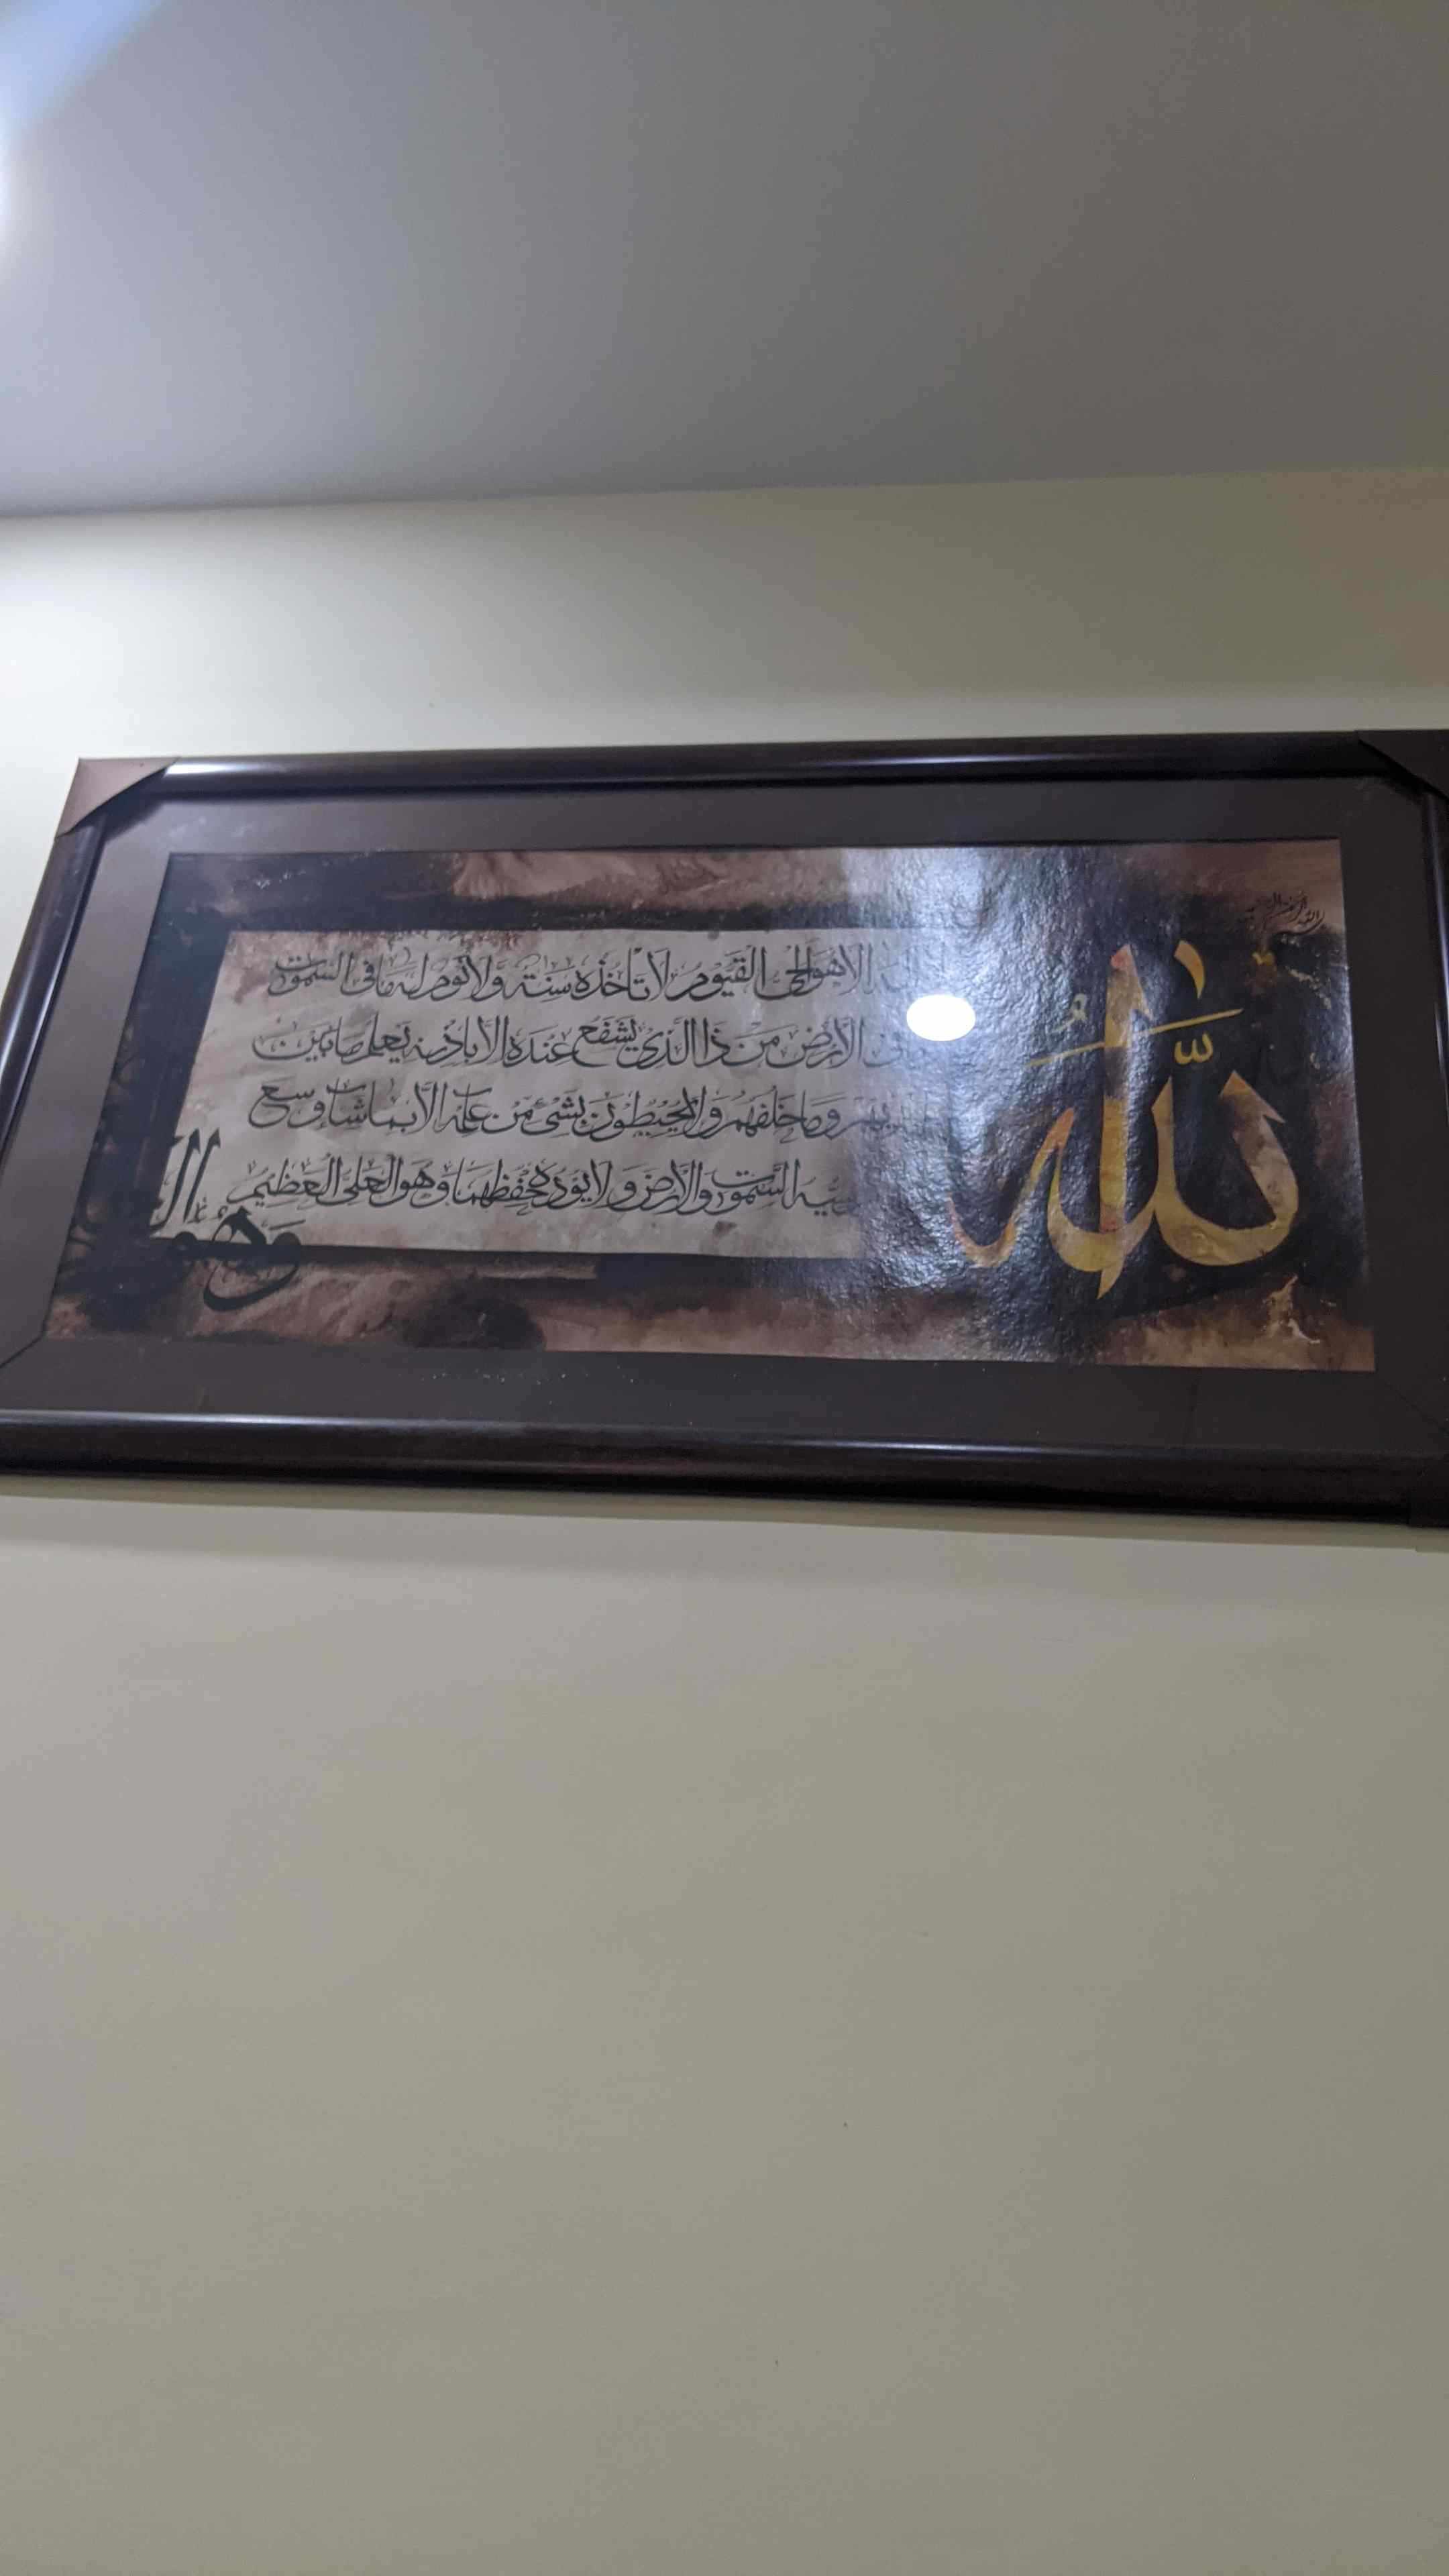 الله
الا هو الحی القیوم لا تأخذه سنة ولا نوم له ما فی السموت
الارض من ذا الذی یشفع عنده الا باذنه یعلم ما بین
وما خلفهم ولا یحیطون بشیء من علمه الا بما شاء وسع
السموت والارض ولا یوده حفظهما وهو العلی العظیم
وهو ال